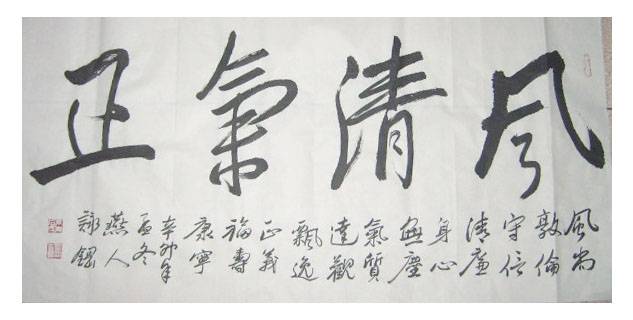 風清氣正
風尚
敦倫
守信
清廉
身心
無塵
氣質
達觀
飄逸
正義
福壽
康寧
辛卯年
孟冬
燕人